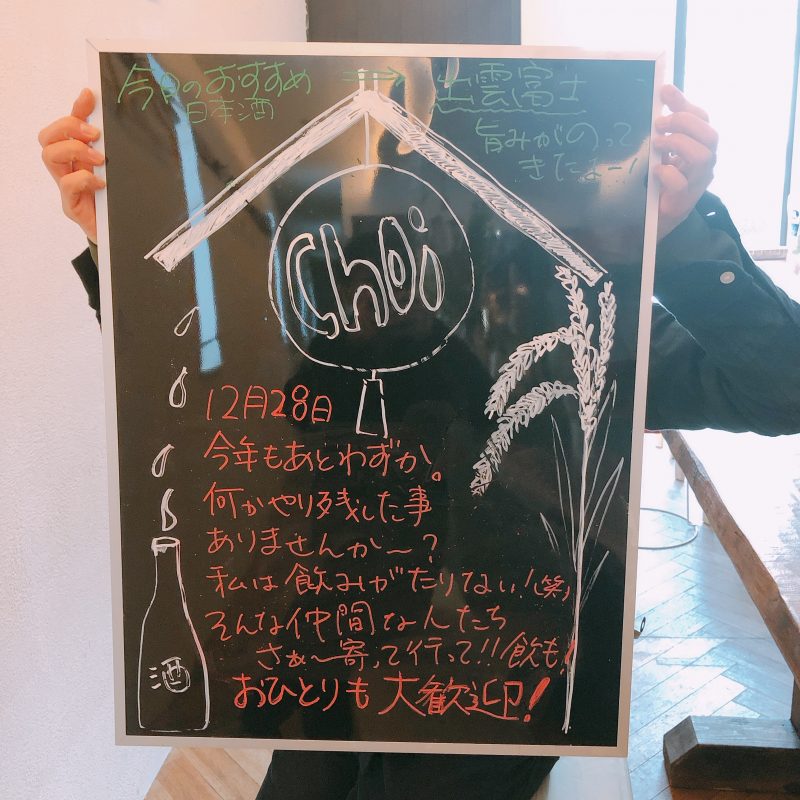 今日のおすすめ
日本酒
→ 出雲富士
旨みがのって
きたよー!
Choi
12月28日
今年もあとわずか。
何かやり残した事
ありませんか〜?
私は飲みがたりない!(笑)
そんな仲間なんたち
さぁ〜寄って行って!!飲も!
おひとりも大歓迎!
酒